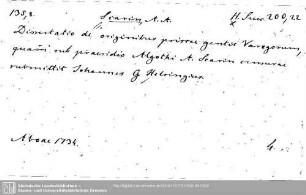 135,8. Scarin, A. A. H. Suec. 200,22
Dissertatio de originibus priscae gentis Varegorum,
quam sub praesidio Algothi A. Scarin censurae
submittit Johannes G Helsingius
Aboae 1734. 4.
Sächsische Landesbibliothek -
Staats- und Universitätsbibliothek Dresden